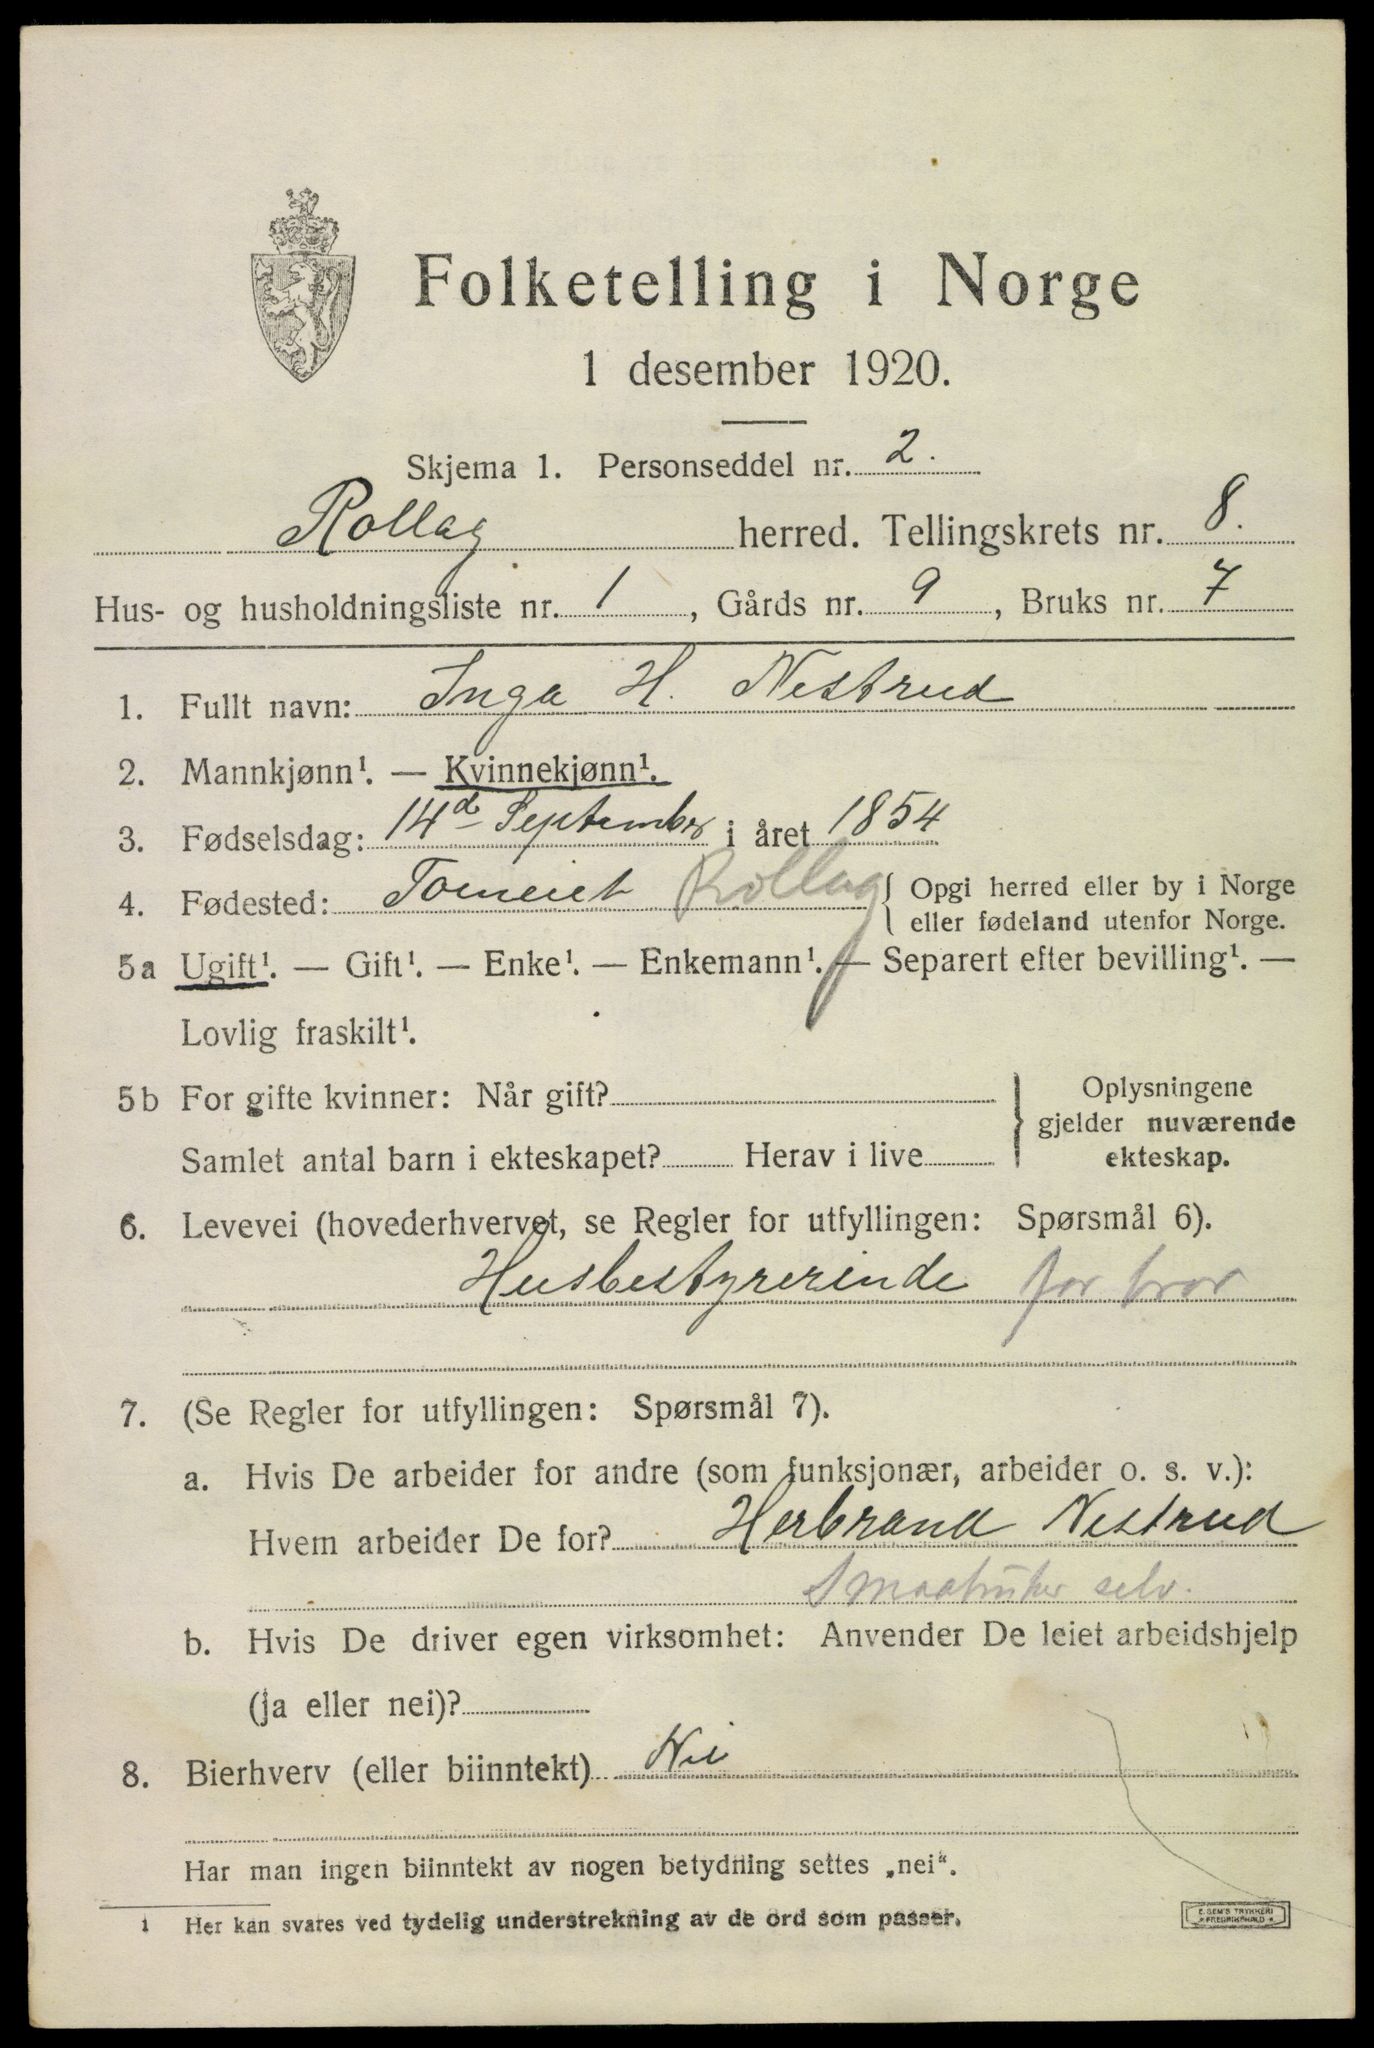 Folketelling i Norge
1 desember 1920.
Skjema 1. Personseddel nr. 2.
Rollag herred. Tellingskrets nr. 8.
Hus- og husholdningsliste nr. 1, Gårds nr. 9, Bruks nr. 7
1. Fullt navn: Inga H. Nestrud
2. Mannkjønn¹. — Kvinnekjønn¹.
3. Fødselsdag: 14d September i året 1854
4. Fødested: Rollag { Opgi herred eller by i Norge
eller fødeland utenfor Norge.
5a Ugift¹. — Gift¹. — Enke¹. — Enkemann¹. — Separert efter bevilling¹. —
Lovlig fraskilt¹.
5b For gifte kvinner: Når gift?
Samlet antal barn i ekteskapet? Herav i live
Oplysningene
gjelder nuværende
ekteskap.
6. Levevei (hovederhvervet, se Regler for utfyllingen: Spørsmål 6).
Husbestyrerinde for bror
7. (Se Regler for utfyllingen: Spørsmål 7).
a. Hvis De arbeider for andre (som funksjonær, arbeider o. s. v.):
Hvem arbeider De for? Herbrand Nestrud
Smaabruker selv.
b. Hvis De driver egen virksomhet: Anvender De leiet arbeidshjelp
(ja eller nei)?
8. Bierhverv (eller biinntekt) Nei
Har man ingen biinntekt av nogen betydning settes „nei“.
1 Her kan svares ved tydelig understrekning av de ord som passer.
E. SEM'S TRYKKERI
FREDRIKSHALD